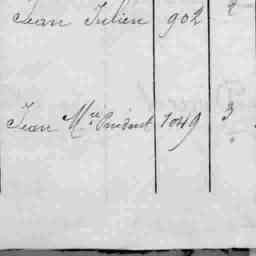 Jean Julien 902 2
Jean M.ce Vincent 1049 3